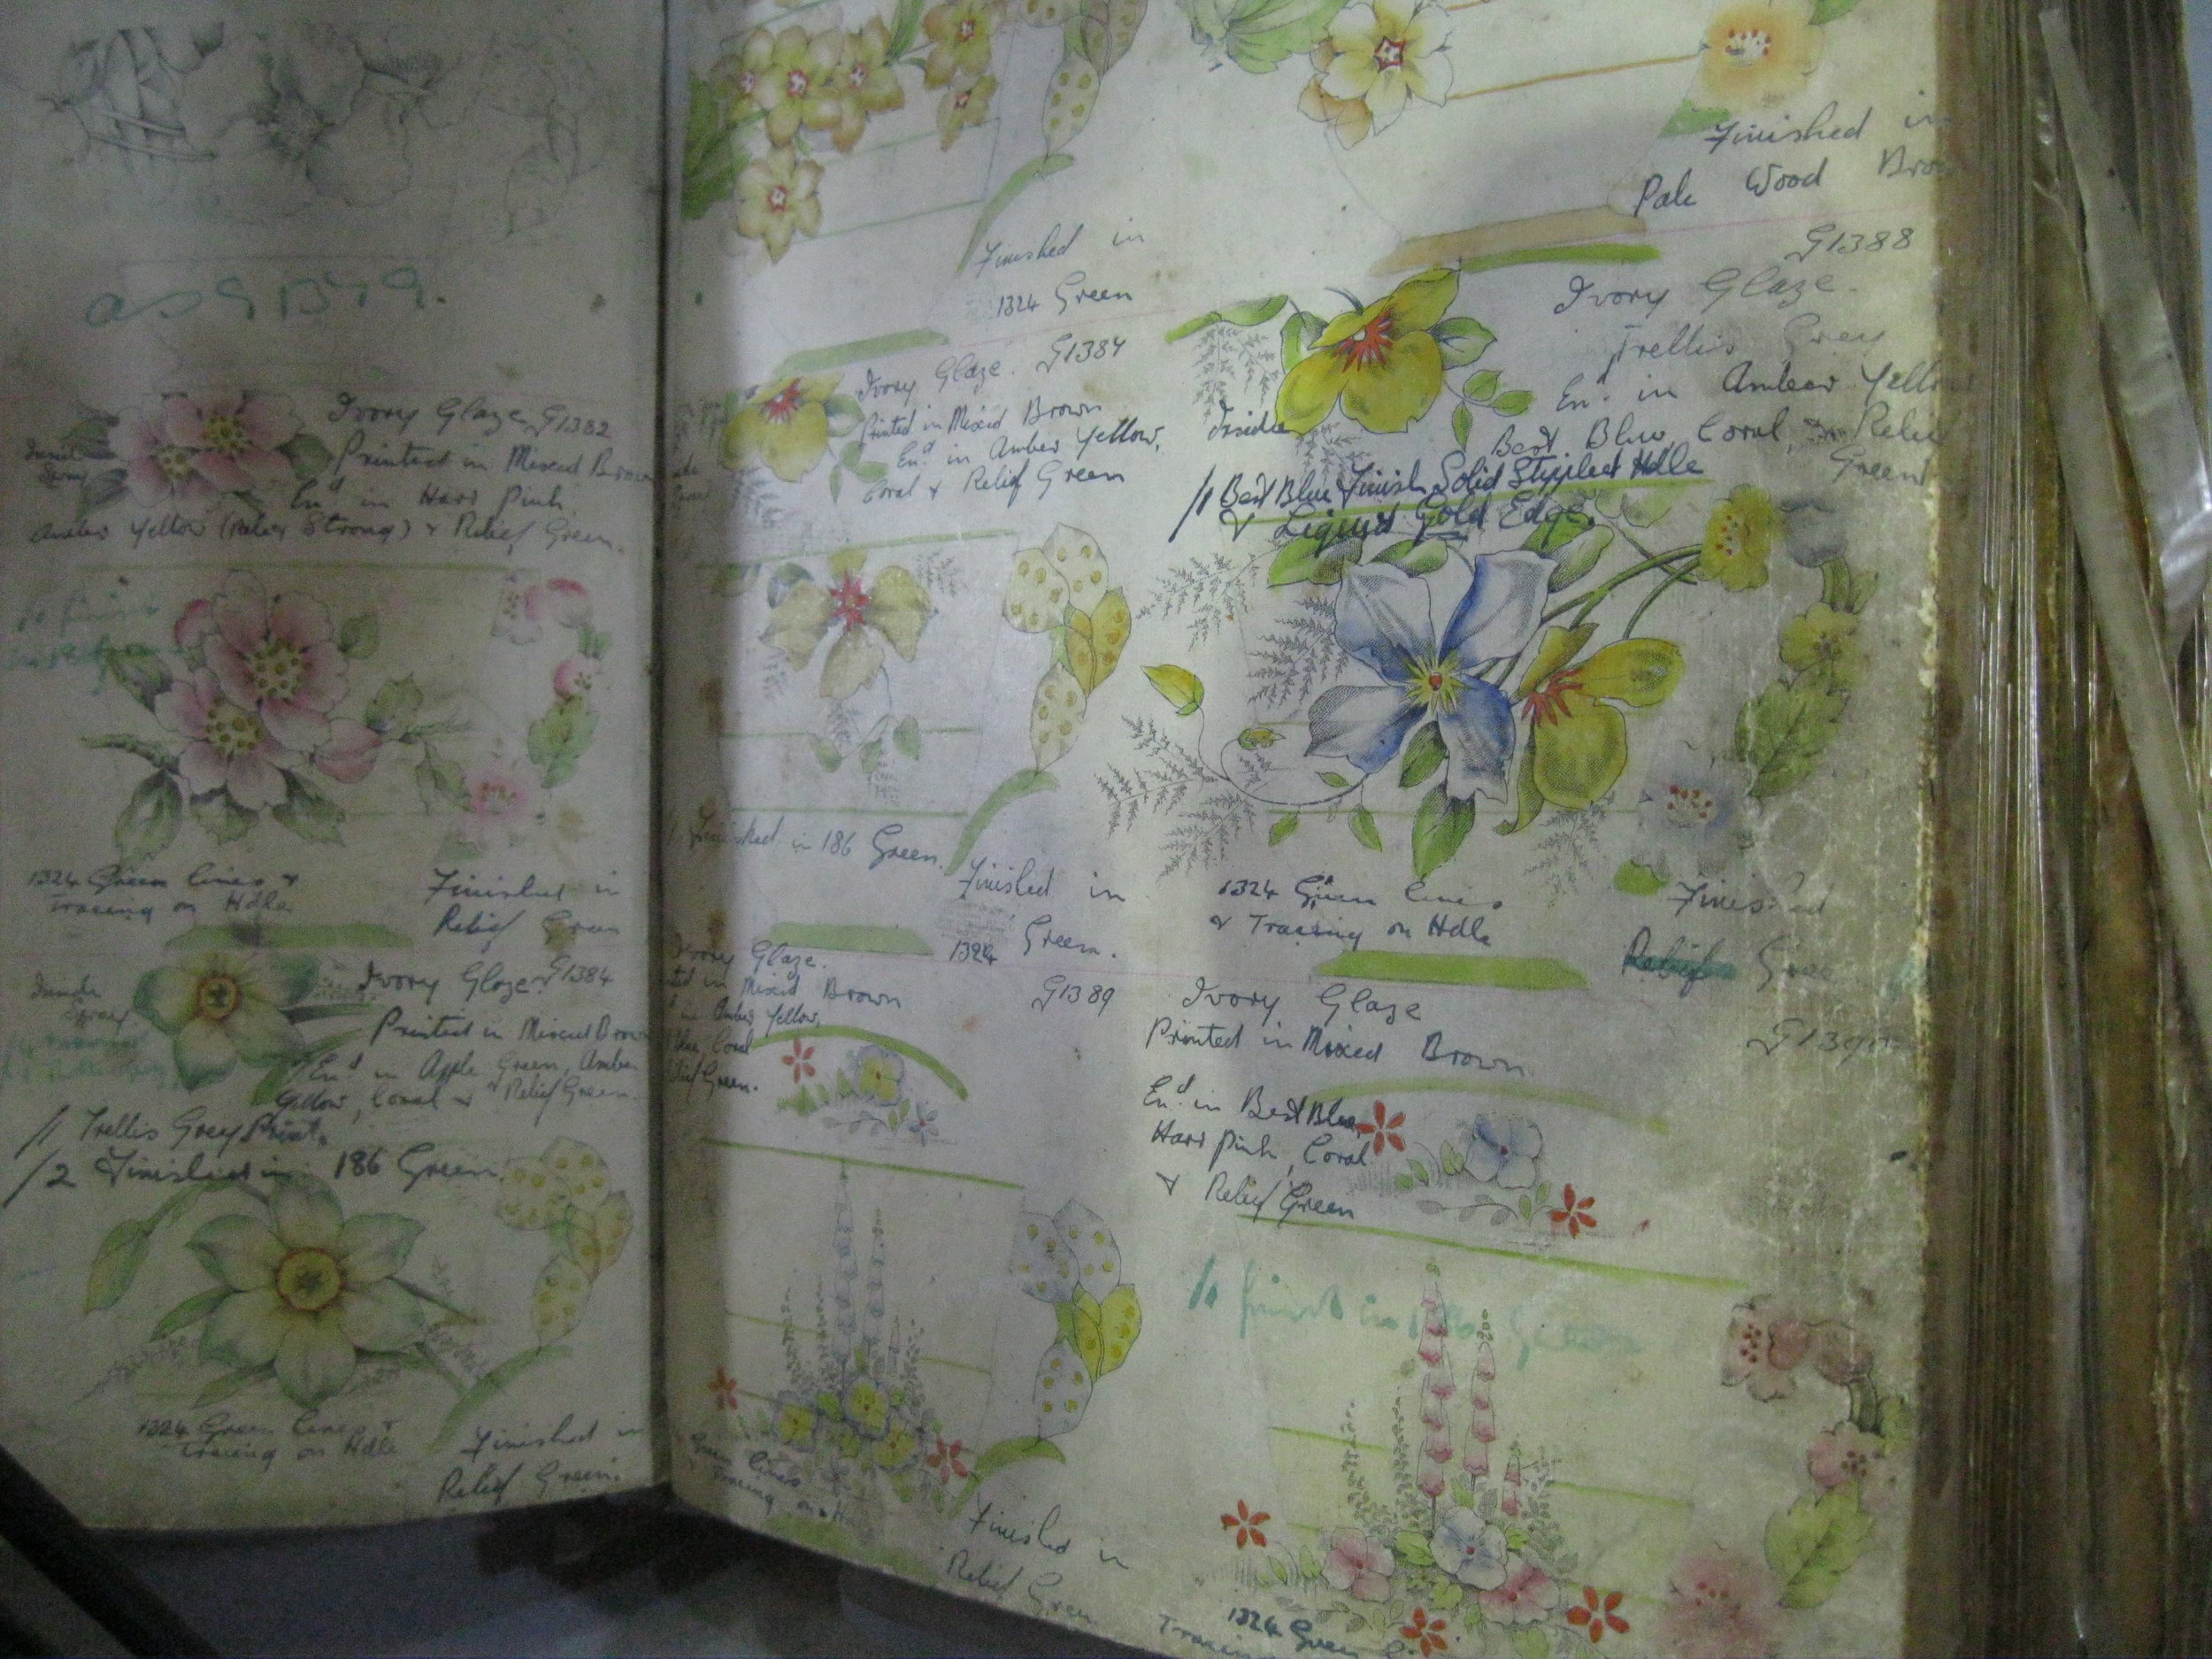 as G1379.
Ivory Glaze G1382
Inside
Spray
Printed in Mixed Brown
En.d in Hars Pink
Amber Yellow (Rather Strong) & Relief Green.
1324 Green lines &
Tracing on Hdle
Finished in
Relief Green
Ivory Glaze G1384
Inside
Spray
Printed in Mixed Brown
En.d in Apple Green, Amber
Yellow, Coral & Relief Green.
/1 Trellis Grey Print.
/2 Finished in 186 Green.
1324 Green lines &
Tracing on Hdle
Finished in
Relief Green.
Finished in
1324 Green
Ivory Glaze. G1387
Printed in Mixed Brown
En.d in Amber Yellow,
Coral & Relief Green
/1 Finished in 186 Green.
Finished in
1324 Green.
Ivory Glaze.
G1389
Mixed Brown
Amber Yellow,
Blue, Coral
Relief Green.
Green lines
& Tracing on H
Finished in
Relief Green
Finished in
Pale Wood Brown
G1388
Ivory Glaze.
Trellis Grey
En.d in Amber Yellow
Inside
Best Blue, Coral, & Relief
Green
/1 Best Blue Finish Solid Stippled Hdle
& Liquid Gold Edge.
1324 Green lines
& Tracing on Hdle
Finished
Relief Green
Ivory Glaze
G1390
Printed in Mixed Brown
En.d in Best Blue,
Hars Pink, Coral
& Relief Green
/1 finish in 186 Green
1324 Green